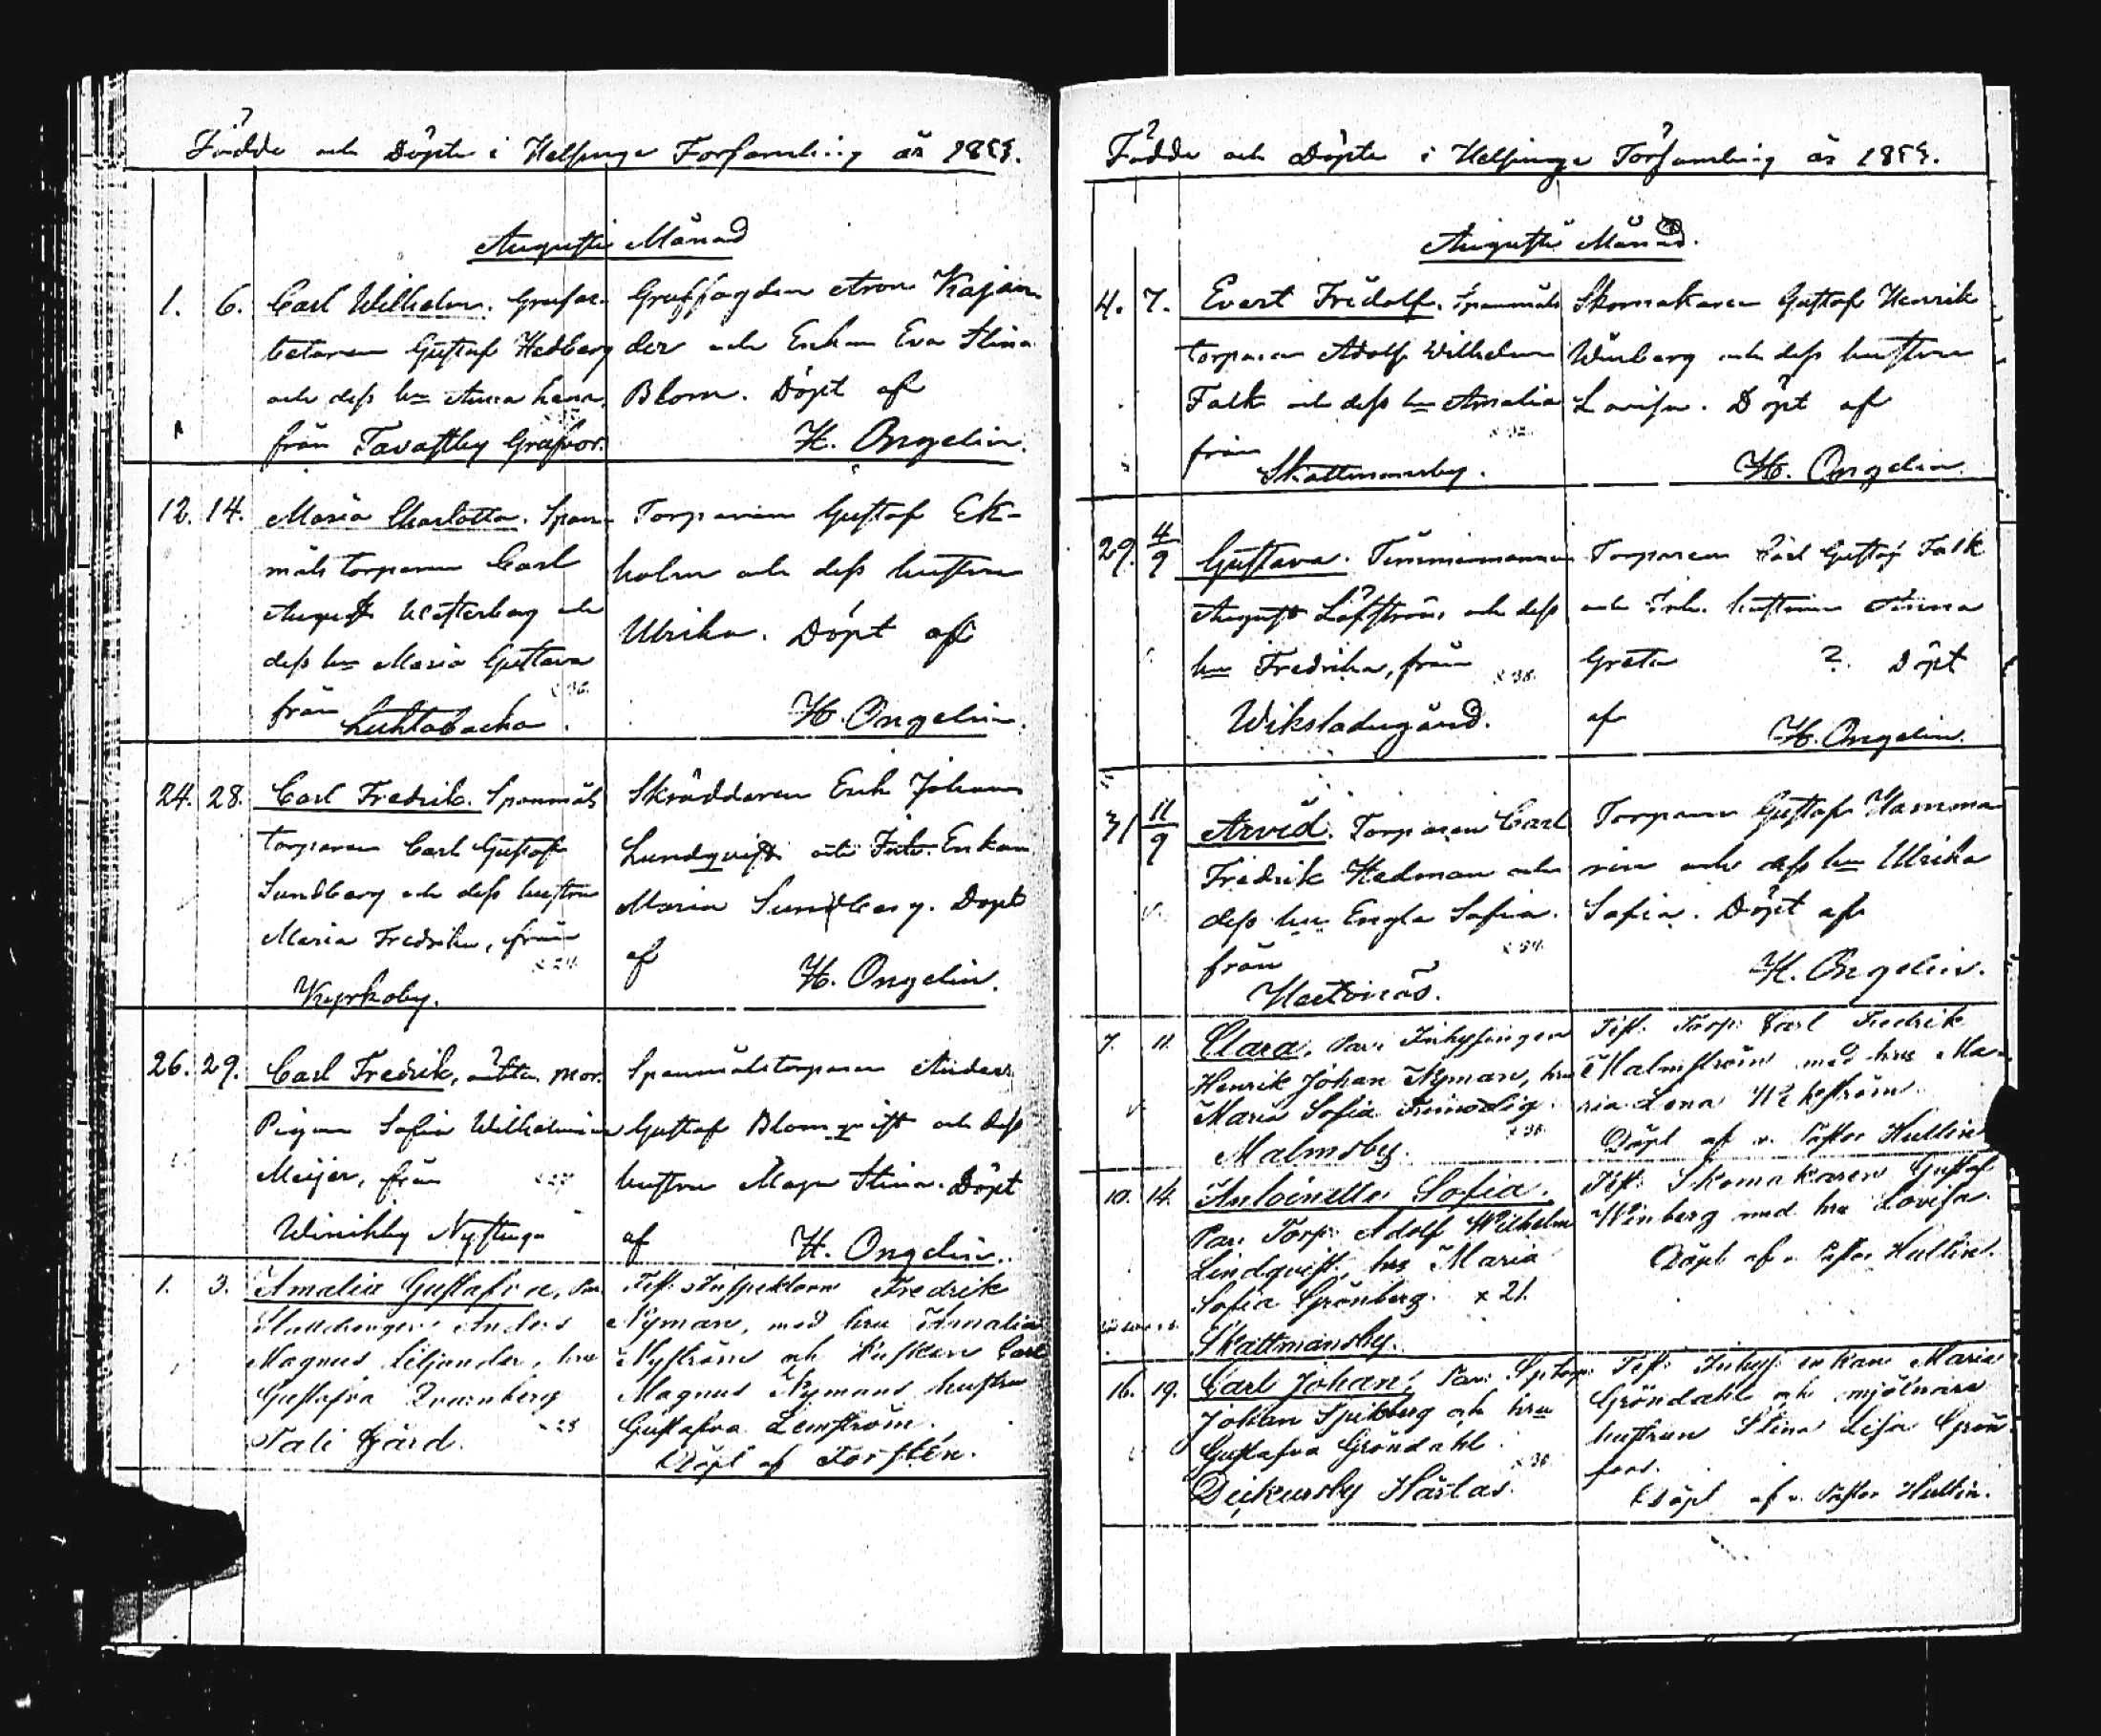 Födde och Döpte i Helsinge Församling år 1859.
Augusti Månad
1. 6. Carl Wilhelm. Grufar-
betaren Gustaf Hedberg
och dess h= Anna Lena,
från Tavastby Grufvor.
Gruffogden Aron Kajan-
der och Enkan Eva Stina
Blom. Döpt af
H. Ongelin.
12. 14. Maria Charlotta. Span-
måls torparen Carl
August Westerberg och
dess h= Maria Gustava
från Luhtabacka.
Torparen Gustaf Ek-
holm och dess hustru
Ulrika. Döpt af
H. Ongelin.
24. 28. Carl Fredrik. Spanmåls
torparen Carl Gustaf
Sundberg och dess hustru
Maria Fredrika, från
Kyrkoby.
Skräddaren Erik Johan
Lundqvist och Inh. Enkan
Maria Sundberg. Döpt
af H. Ongelin.
26. 29. Carl Fredrik, oäkta. Mor.
Pigan Sofia Wilhelmina
Meijer, från
Winikby Nystuga
Spanmålstorparen Anders
Gustaf Blomqvist och dess
hustru Maja Stina. Döpt
af H. Ongelin.
1. 3. Amalia Gustafva,
Anders
Magnus Liljander, hru
Gustafva Qvarnberg
x 23
Tali Gård.
Test: Inspektorn Fredrik
Nyman, med hru Amalia
Nyström och Kusken Carl
Magnus Nymans hustru
Gustafva Lemström.
Döpt af Forstén.
Födde och Döpte i Helsinge Församling år 1859.
Augusti Månad.
4. 7. Evert Fridolf. Spanmåls
torparen Adolf Wilhelm
Falk och dess h= Amalia
från
Skattmansby.
Skomakaren Gustaf Henrik
Winberg och dess hustru
Lovisa. Döpt af
H. Ongelin.
29. 4/9 Gustava. Timmermannen
August Löfström och dess
h= Fredrika, från
Wiksladugård.
Torparen Carl Gustaf Falk
och Inh. hustrun Anna
Greta ? Döpt
af H. Ongelin.
31 11/9 Arvid. Torparen Carl
Fredrik Hedman och
dess h= Engla Sofia.
från
Hertonäs.
Torparen Gustaf Hamma-
rin och dess h= Ulrika
Sofia. Döpt af
H. Ongelin.
7. 11. Clara. Par: Inhysingen
Henrik Johan Nyman, hru
Maria Sofia Frimodig.
Malmsby.
Test: Torp: Carl Fredrik
Malmström med hru Ma-
ria Lena Wikström.
Döpt af v. Pastor Hullin
10. 14. Antoinette Sofia.
Par: Torp: Adolf Wilhelm
Lindqvist, hru Maria
Sofia Grönberg. x 21.
Skattmansby.
Test: Skomakaren Gustaf
Winberg med hru Lovisa.
Döpt af v. Pastor Hullin.
16. 19. Carl Johan, Par: Sp.torp:
Johan Spikberg och hru
Gustafva Gröndahl.
Dickursby Hästas.
Test: Inhys: enkan Maria
Gröndahl och mjölnare
hustrun Stina Lisa Grön-
fors.
Döpt af v. Pastor Hullin.